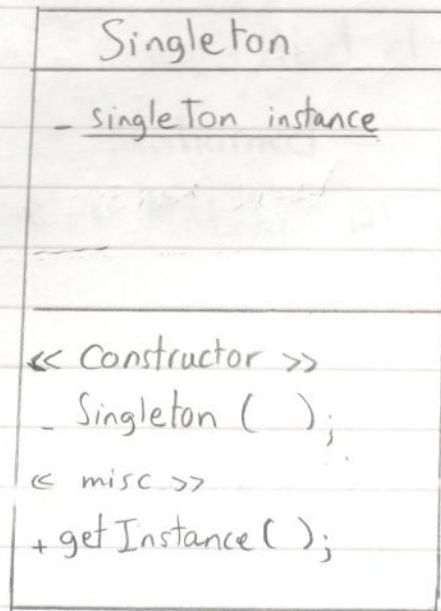 Singleton
- singleTon instance
<< Constructor >>
- Singleton ( );
<< misc >>
+ getInstance( );